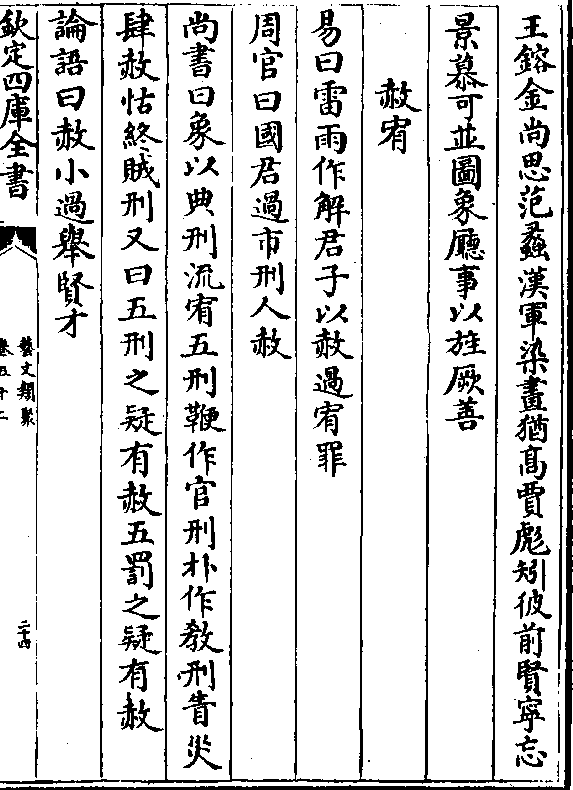 王鎔金尚思范蠡漢軍染畫猶髙賈彪矧彼前賢寜忘
景慕可並圖象廳事以旌厥善
赦宥
易曰雷雨作解君子以赦過宥罪
周官曰國君過市刑人赦
尚書曰象以典刑流宥五刑鞭作官刑朴作教刑眚災
肆赦怙終賊刑又曰五刑之疑有赦五罰之疑有赦
論語曰赦小過舉賢才
欽定四庫全書
藝文類聚
卷五十二
二十四